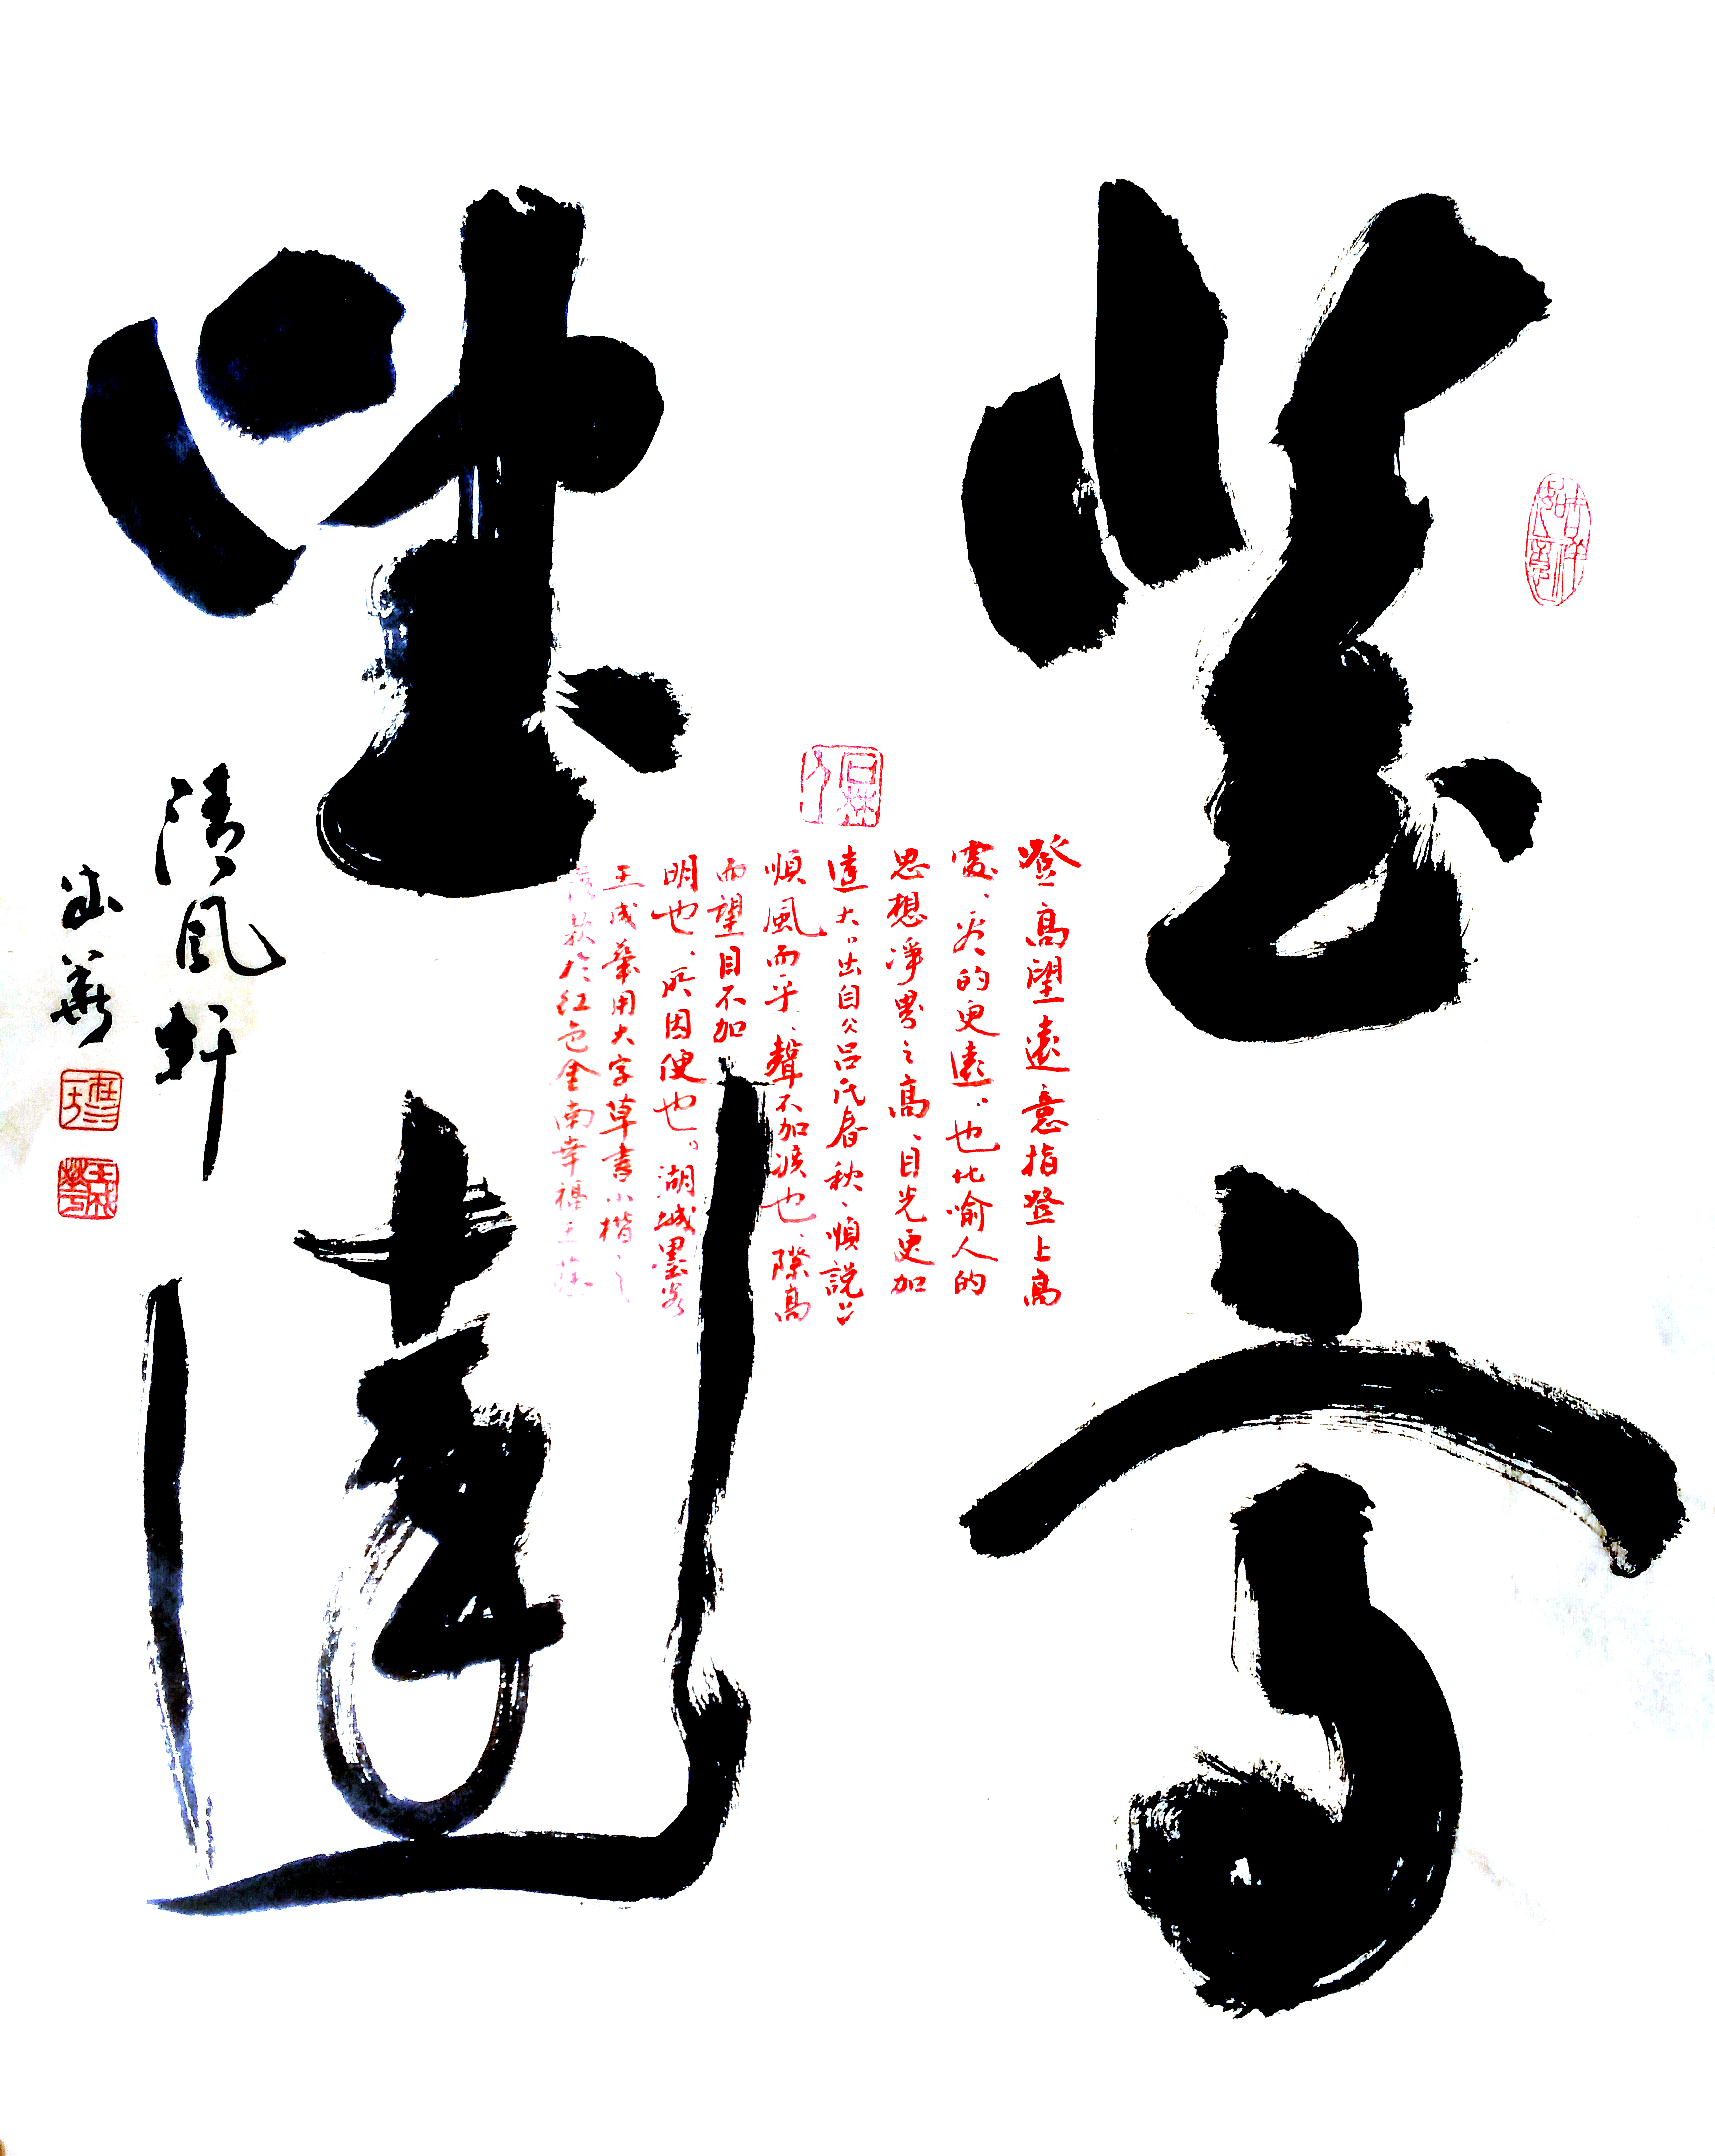 登高
望遠
登高望遠意指登上高
處、看的更遠。也比喻人的
思想淨界之高、目光更加
遠大。出自《呂氏春秋、順說》
順風而乎、聲不加疾也、際高
而望目不加
明也、所因便也。湖城墨客
王成華用大字草書小楷之
落款於红色金南幸福王莊
清風轩
成華
吉祥如意